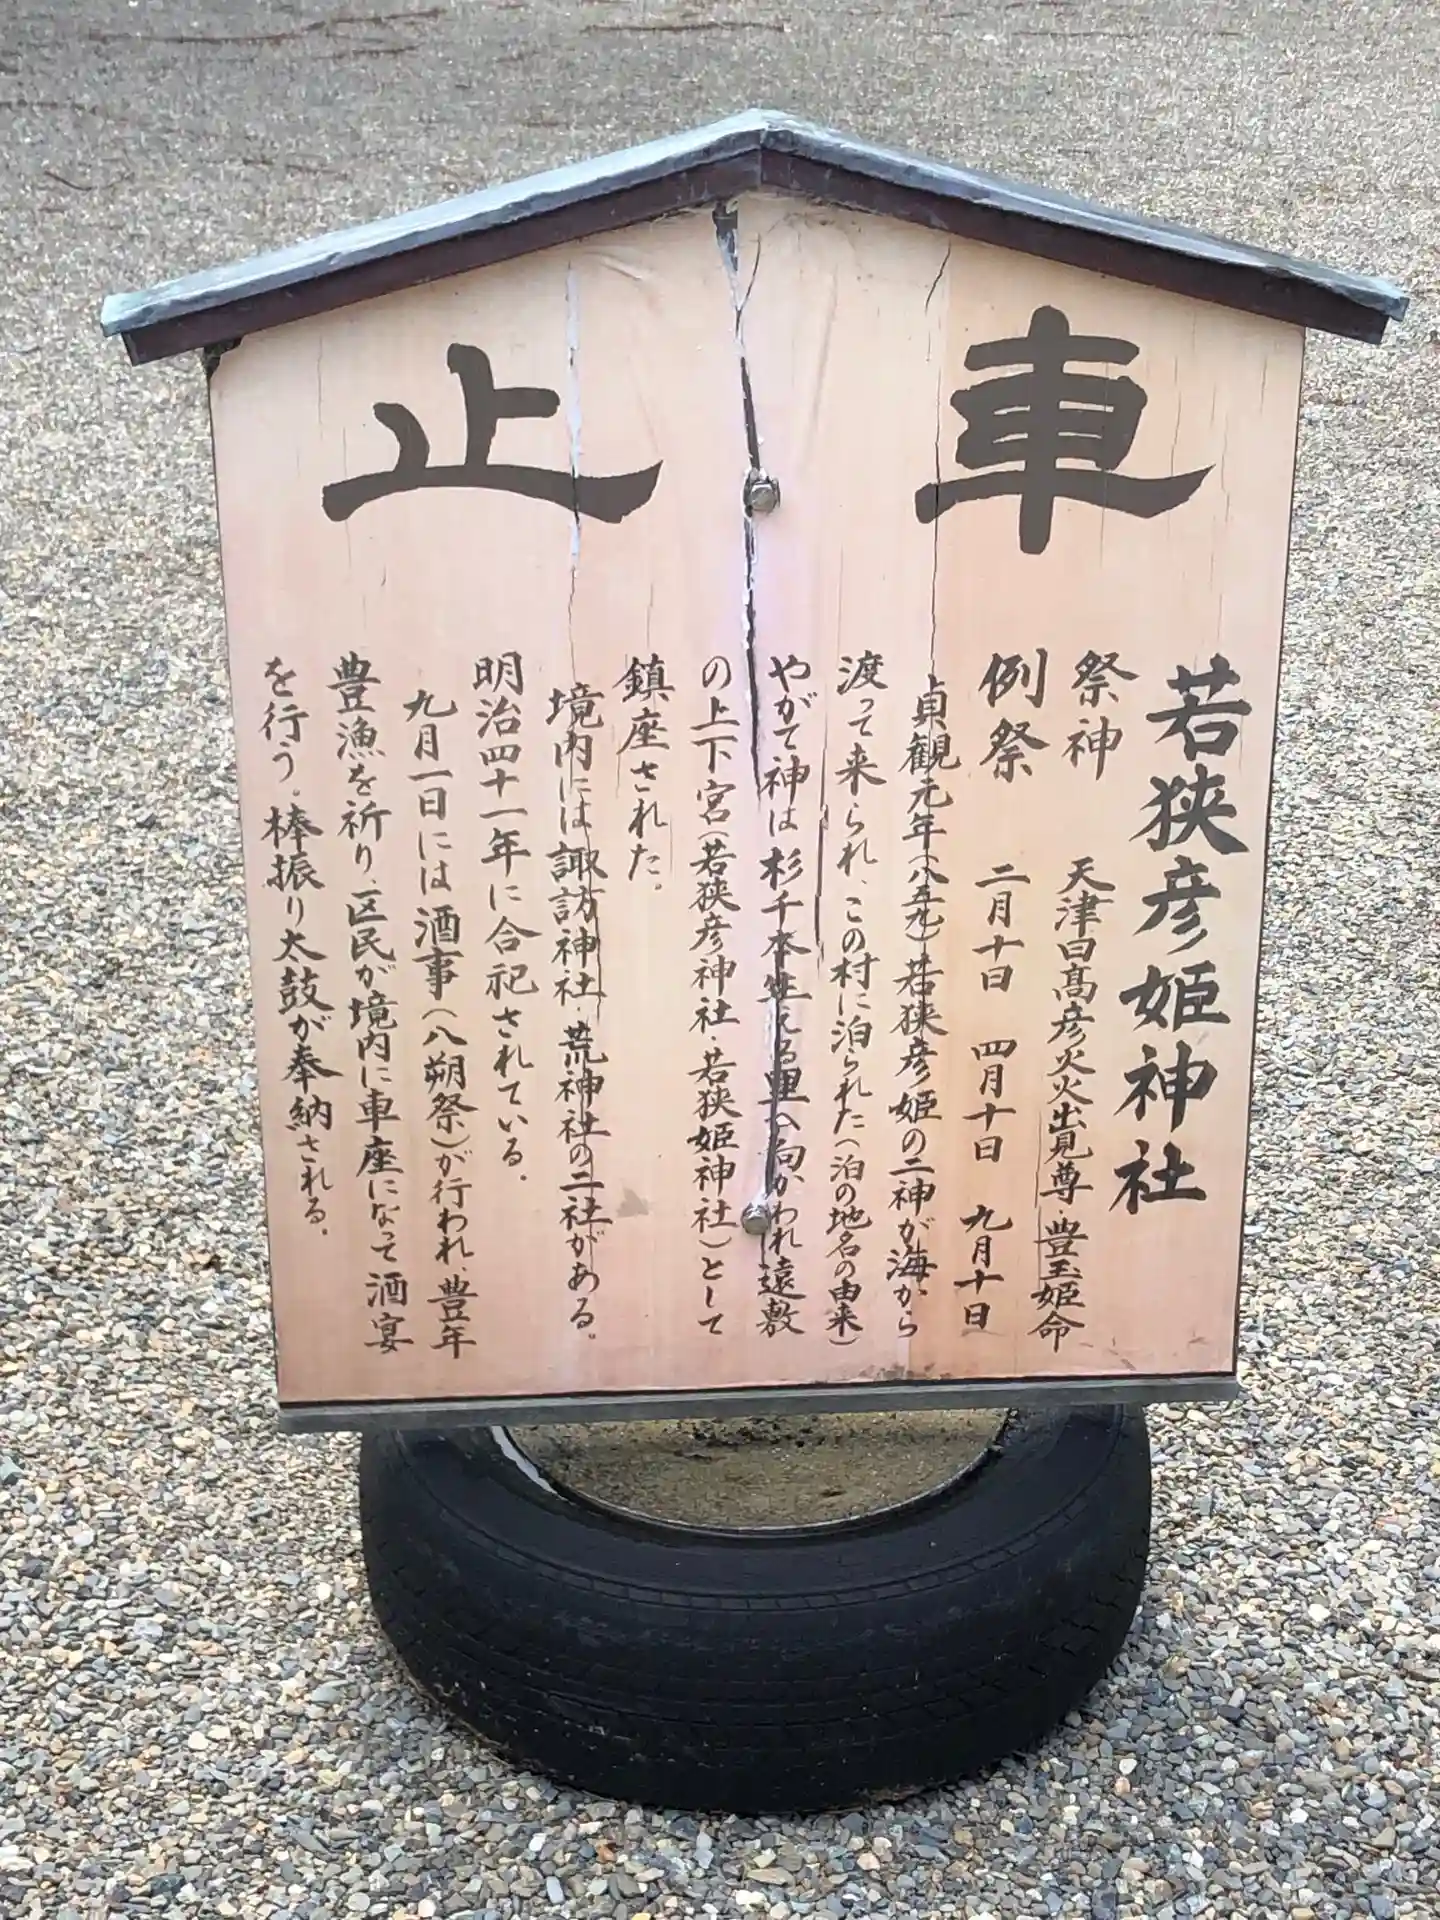 車止
若狭彦姫神社
祭神 天津日高彦火火出見尊・豊玉姫命
例祭 二月十日 四月十日 九月十日
貞観元年(八五九)若狭彦姫の二神が海から
渡って来られ、この村に泊られた(泊の地名の由来)
やがて神は杉千本生える里へ向かわれ遠敷
の上下宮(若狭彦神社・若狭姫神社)として
鎮座された。
境内には諏訪神社・荒神社の二社がある。
明治四十一年に合祀されている。
九月一日には酒事(八朔祭)が行われ、豊年
豊漁を祈り、区民が境内に車座になって酒宴
を行う。棒振り太鼓が奉納される。